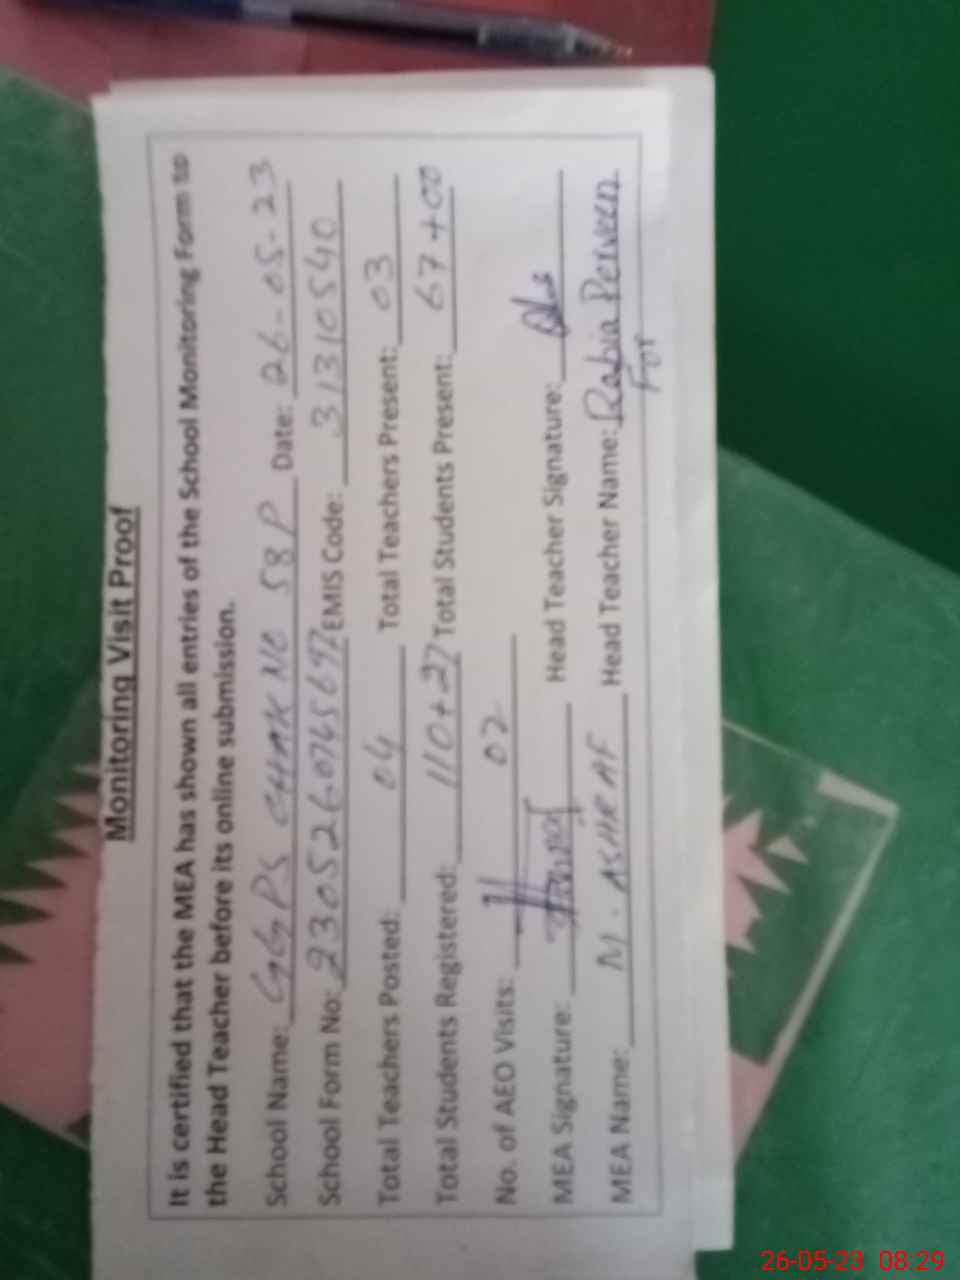 Monitoring Visit Proof
It is certified that the MEA has shown all entries of the School Monitoring Form to
the Head Teacher before its online submission.
School Name: GGPS CHAK NO 58P Date: 26-05-23
School Form No: 230526074569 EMIS Code: 31310540
Total Teachers Posted: 04 Total Teachers Present: 03
Total Students Registered: 110+27 Total Students Present: 67+00
No. of AEO Visits: 02
MEA Signature: Head Teacher Signature:
MEA Name: M. ASHRAF Head Teacher Name: Rabia Perveen
For
26-05-23 08:29